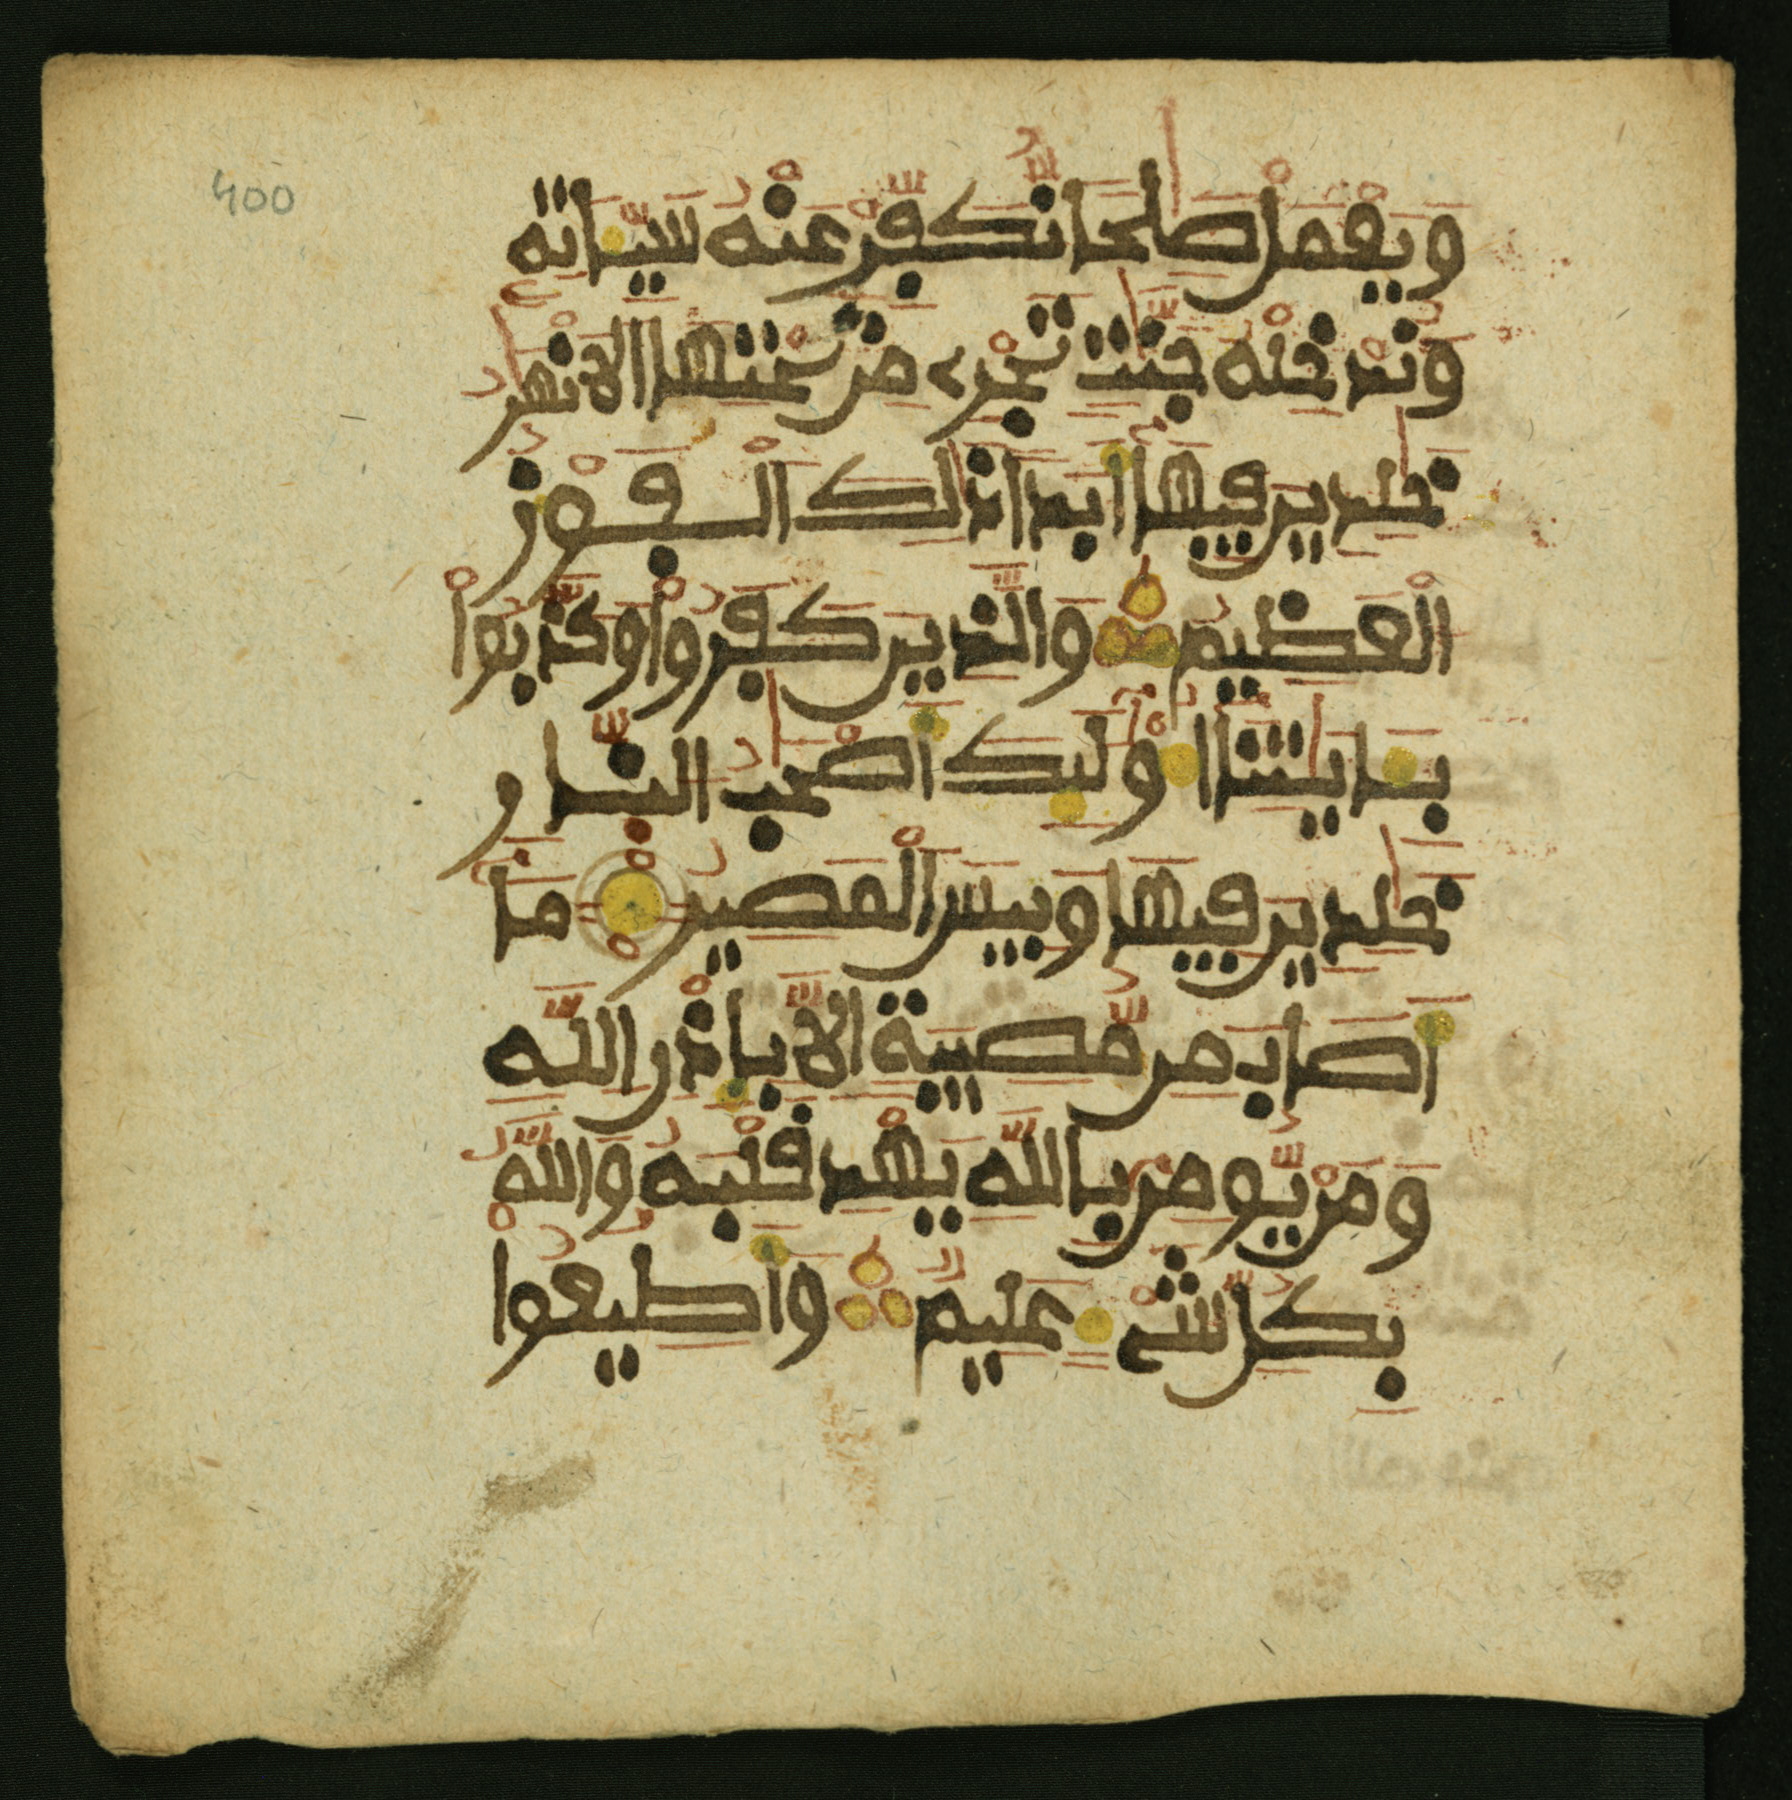 400
ويعمل صلحا نكفر عنه سيـاته
وندخله جنت تجرے من تحتها الانهر
خلدين فيها ابدا ذلك الفوز
العظيم والذين كفروا وكذبوا
بـايتنا اولـيك اصحب النار
خلدين فيها وبيس المصير ما
اصاب من مصيبة الا باذن الله
ومن يومن بالله يهد قلبه والله
بكل شے عليم واطيعوا